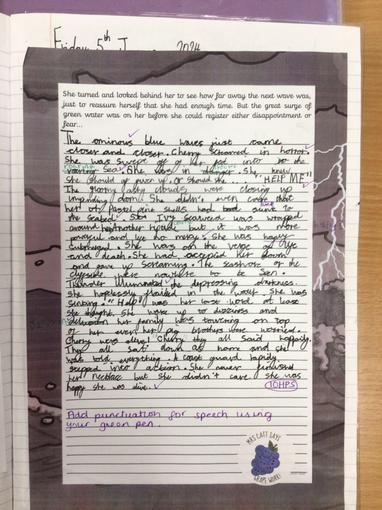 Friday 5th J 2024
She turned and looked behind her to see how far away the next wave was,
just to reassure herself that she had enough time. But the great surge of
green water was on her before she could register either disappointment or
fear...
The ominous blue waves just came
closer and closer. Cherry screamed in horror.
She was swept off of her feet into the
roaring sea. She was in danger. She knew
she should give up, or should she... "HELP ME"
The gloomy ashy clouds were closing up
impending doom. She didn't even care that
her pastel pink shells had sunk to
the seabed. Ivy seaweed was wrapped
around her but it was more
powerful and no mercy. She was
submerged. She was on the verge of life
and death. She had accepted her doom
and gave up screaming. The seashore or the
cliffside were nowhere to be seen.
Thunder illuminated the depressing darkness.
she hopelessly floated in the water. She was
sinking. "Help" was her last word at least
she thought. She woke up to
her family was towering on top
of her even her big brothers were worried.
Cherry you're alive! Cherry they all said happily.
They all sat down at home and she
told everything. A coast guard rapidly
stepped into action. She never finished
her necklace but she didn't care she was
happy she was alive.
Add punctuation for speech using
your green pen.
MRS CATT SAYS
GRAPE WORK!